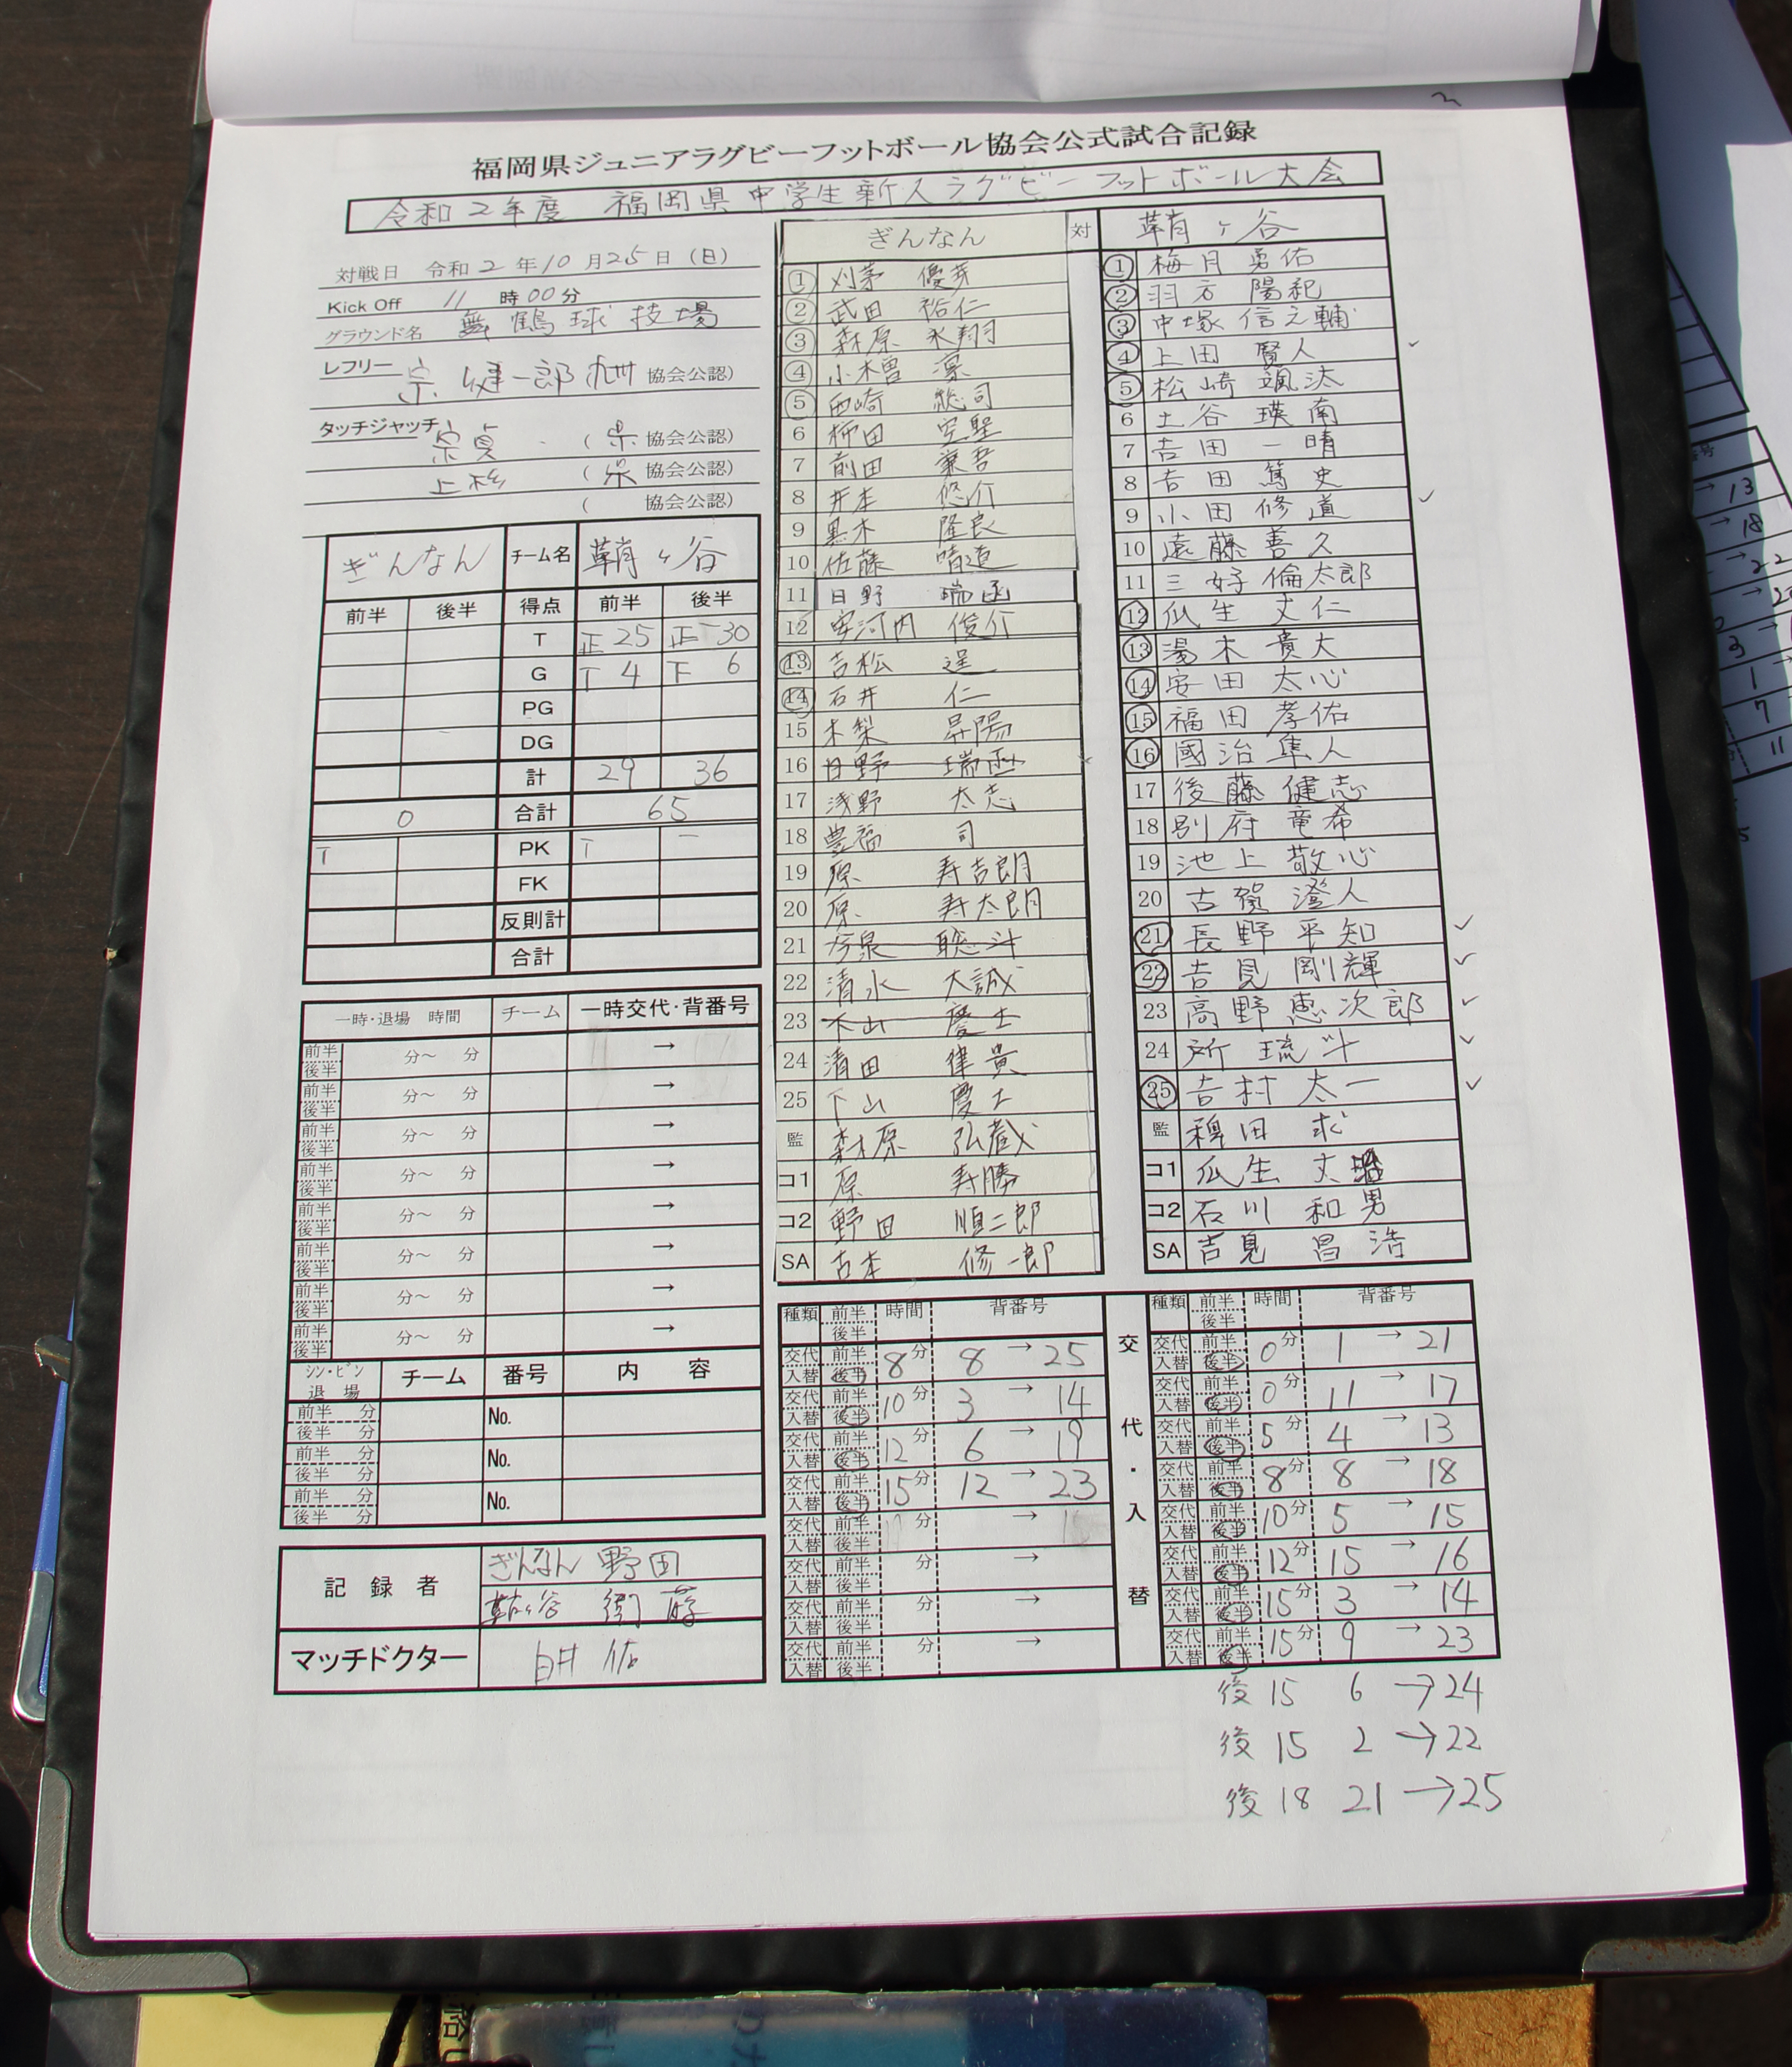 福岡県ジュニアラグビーフットボール協会公式試合記録
令和2年度 福岡県中学生新人ラグビーフットボール大会
対戦日 令和2年10月25日(日)
Kick Off 11時00分
グラウンド名 舞鶴球技場
レフリー 宗 健一郎 九州 協会公認)
タッチジャッチ 宗貞 (県 協会公認)
上杉 (県 協会公認)
( 協会公認)
ぎんなん チーム名 鞘ヶ谷
前半 後半 得点 前半 後半
T 正25 正一30
G 4 6
PG
DG
計 29 36
0 合計 65
T PK T 一
FK
反則計
合計
一時・退場 時間 チーム 一時交代・背番号
前半 後半 分~ 分 →
前半 後半 分~ 分 →
前半 後半 分~ 分 →
前半 後半 分~ 分 →
前半 後半 分~ 分 →
前半 後半 分~ 分 →
前半 後半 分~ 分 →
前半 後半 分~ 分 →
シン・ビン 退場 チーム 番号 内容
前半 分 後半 分 No.
前半 分 後半 分 No.
前半 分 後半 分 No.
記録者 ぎんなん 野田
鞘ヶ谷 衛藤
マッチドクター 臼井 佑
ぎんなん 対 鞘ヶ谷
1 刈茅 優芽
2 武田 裕仁
3 森原 永翔
4 小木曽 凛
5 西崎 総司
6 柳田 空聖
7 前田 兼吾
8 井本 悠介
9 黒木 隆良
10 佐藤 晴道
11 日野 瑞函
12 安河内 俊介
13 吉松 逞
14 石井 仁
15 木梨 昇陽
16 日野 瑞函
17 浅野 太志
18 豊福 司
19 原 寿吉朗
20 原 寿太朗
21 今泉 聡斗
22 清水 大誠
23 下山 慶士
24 清田 律貴
25 下山 慶士
監 森原 弘蔵
コ1 原 寿勝
コ2 野田 順二郎
SA 古本 修一郎
1 梅月 勇佑
2 羽方 陽祀
3 中塚 信之輔
4 上田 賢人
5 松崎 颯汰
6 土谷 瑛南
7 吉田 一晴
8 吉田 篤史
9 小田 修道
10 遠藤 善久
11 三好 倫太郎
12 瓜生 丈仁
13 湯木 貴大
14 安田 太心
15 福田 孝佑
16 國治 隼人
17 後藤 健志
18 別府 竜希
19 池上 敬心
20 古賀 澄人
21 長野 平知
22 吉見 剛輝
23 高野 恵次郎
24 所 琉斗
25 吉村 太一
監 稗田 求
コ1 瓜生 丈
コ2 石川 和男
SA 吉見 昌浩
種類 前半 後半 時間 背番号
交代 入替 前半 後半 8分 8→25
交代 入替 前半 後半 10分 3→14
交代 入替 前半 後半 12分 6→19
交代 入替 前半 後半 15分 12→23
交代 入替 前半 後半 分 →
交代 入替 前半 後半 分 →
交代 入替 前半 後半 分 →
交代 入替 前半 後半 分 →
交代・入替
種類 前半 後半 時間 背番号
交代 入替 前半 後半 0分 1→21
交代 入替 前半 後半 0分 11→17
交代 入替 前半 後半 5分 4→13
交代 入替 前半 後半 8分 8→18
交代 入替 前半 後半 10分 5→15
交代 入替 前半 後半 12分 15→16
交代 入替 前半 後半 15分 3→14
交代 入替 前半 後半 15分 9→23
後 15 6→24
後 15 2→22
後 18 21→25